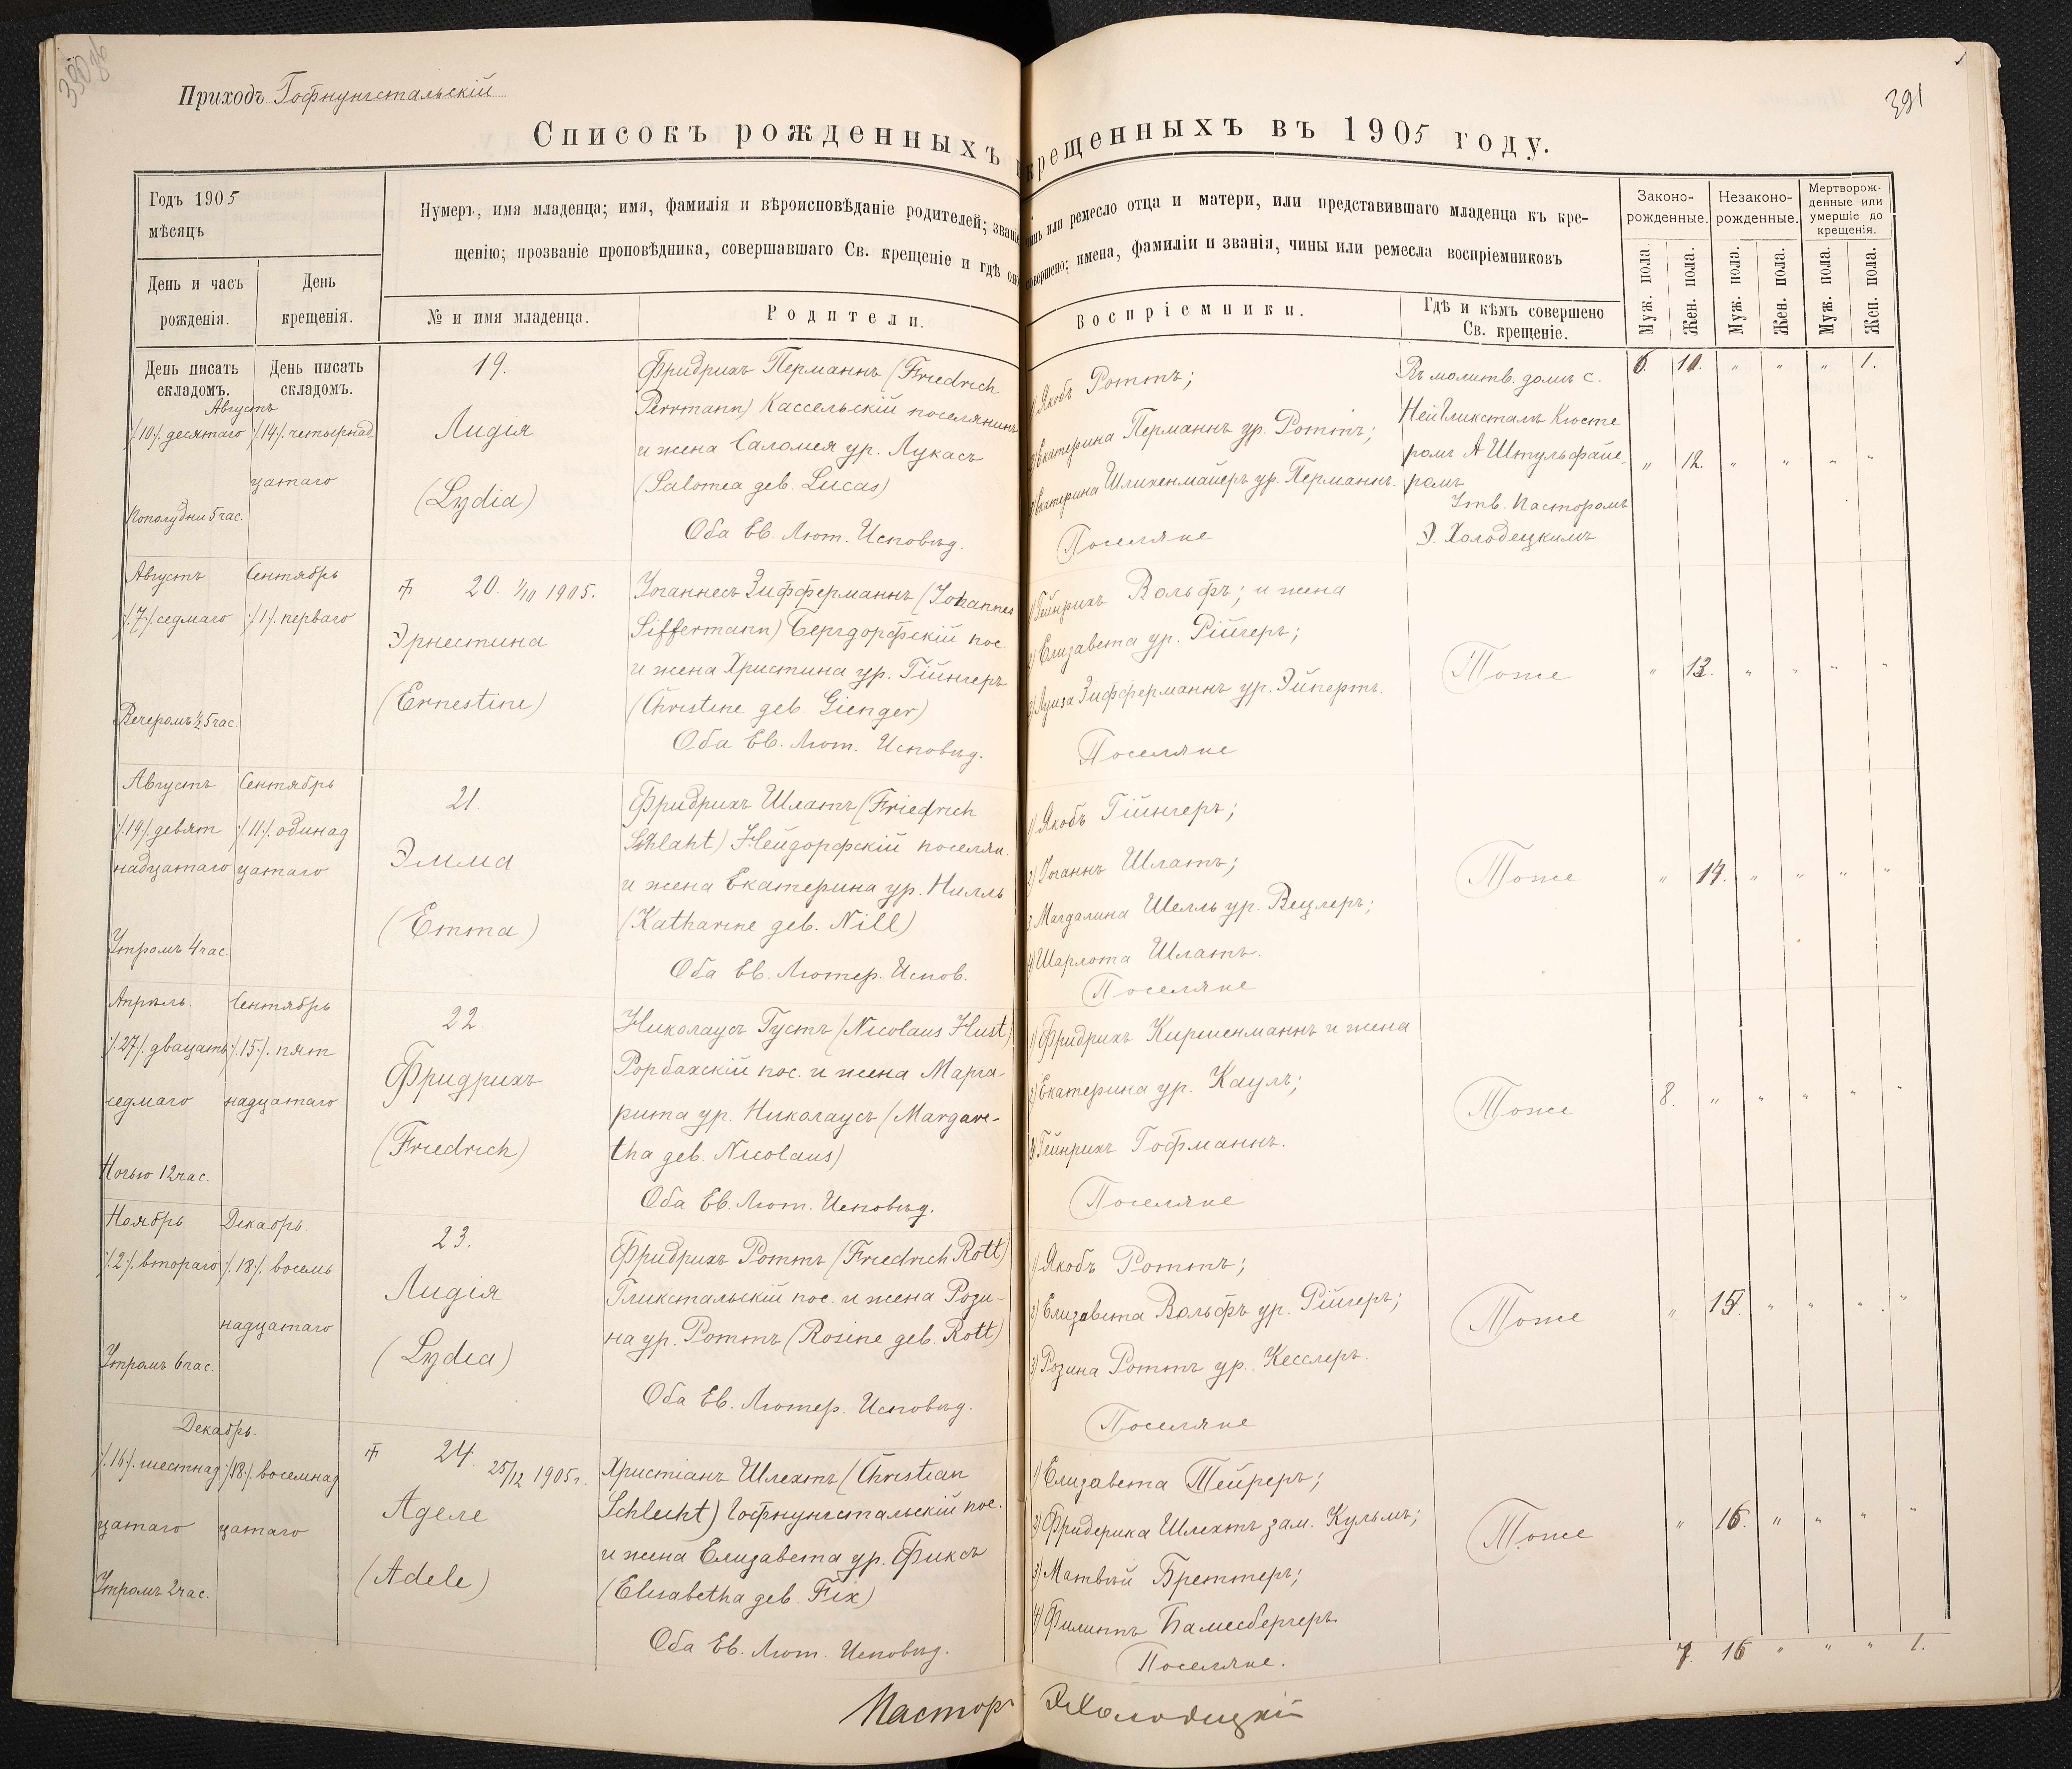 390 об
391
Приходъ Гофнунгстальскій
Списокъ рожденныхъ и крещенныхъ въ 1905 году.
Годъ 1905
мѣсяцъ
День и часъ
рожденія.
День
крещенія.
Нумеръ, имя младенца; имя, фамилія и вѣроисповѣданіе родителей; званіе, чинъ или ремесло отца и матери, или представившаго младенца къ кре-
щенію; прозваніе проповѣдника, совершавшаго Св. крещеніе и гдѣ оно совершено; имена, фамиліи и званія, чины или ремесла воспріемниковъ
№ и имя младенца.
Родители.
Воспріемники.
Гдѣ и кѣмъ совершено
Св. крещеніе.
Законо-
рожденные.
Незаконо-
рожденные.
Мертворож-
денные или
умершіе до
крещенія.
Муж. пола.
Жен. пола.
Муж. пола.
Жен. пола.
Муж. пола.
Жен. пола.
День писать
складомъ.
День писать
складомъ.
Августъ
/.10/. десятаго
Пополудни 5 час.
/.14/. четырнад
цатаго
19.
Лидія
(Lydia)
Фридрихъ Перманнъ (Friedrich
Perrmann) Кассельскій поселянинъ
и жена Саломея ур. Лукасъ
(Salomea geb. Lucas)
Оба Ев. Лют. Исповѣд.
1) Якобъ Роттъ;
2) Екатерина Перманнъ ур. Роттъ;
3) Екатерина Шлихенмайеръ ур. Перманнъ.
Поселяне
Въ молитв. домѣ с.
Нейгликсталь Кюсте
ромъ А Штульфайе-
ромъ
Утв. Пасторомъ
Э. Холодецкимъ
6. 11. " " " 1.
" 12. " " " "
Августъ
/.7/. седмаго
Вечеромъ ½5 час.
Сентябрь
/.1/. перваго
20. 1/10 1905.
Эрнестина
(Ernestine)
Іоаннесъ Зифферманнъ (Johannes
Siffermann) Бергдорфскій пос.
и жена Христина ур. Гійнгеръ
(Christine geb. Gienger)
Оба Ев. Лют. Исповѣд.
1) Гейнрихъ Вольфъ; и жена
2) Елизавета ур. Рійгеръ;
3) Луиза Зифферманнъ ур. Эйпертъ.
Поселяне
Тоже
" 13. " " " "
Августъ
/.19/. девят
надцатаго
Утромъ 4 час.
Сентябрь
/.11/. одинад
цатаго
21.
Эмма
(Emma)
Фридрихъ Шлатъ (Friedrich
Schlaht) Нейдорфскій поселян.
и жена Екатерина ур. Нилль
(Katharine geb. Nill)
Оба Ев. Лютер. Испов.
1) Якобъ Гійнгеръ;
2) Іоганнъ Шлатъ;
3) Магдалина Шелль ур. Вецлеръ;
4) Шарлота Шлатъ.
Поселяне
Тоже
" 14. " " " "
Апрѣль.
/.27/. двацать
седмаго
Ночью 12 час.
Сентябрь
/.15/. пят
надцатаго
22.
Фридрихъ
(Friedrich)
Николаусъ Густъ (Nicolaus Hust)
Рорбахскій пос. и жена Марга-
рита ур. Николаусъ (Margare-
tha geb. Nicolaus)
Оба Ев. Лют. Исповѣд.
1) Фридрихъ Киршенманнъ и жена
2) Екатерина ур. Каулъ;
3) Гейнрихъ Гофманнъ.
Поселяне
Тоже
8. " " " " "
Ноябрь
/.2/. втораго
Утромъ 6 час.
Декабрь.
/.18/. восемь
надцатаго
23.
Лидія
(Lydia)
Фридрихъ Роттъ (Friedrich Rott)
Гликстальскій пос. и жена Рози-
на ур. Роттъ (Rosine geb. Rott)
Оба Ев. Лютер. Исповѣд.
1) Якобъ Роттъ;
2) Елизавета Вольфъ ур. Рійгеръ;
3) Розина Роттъ ур. Кесслеръ.
Поселяне
Тоже
" 15. " " " "
Декабрь.
/.16/. шестнад
цатаго
Утромъ 2 час.
/.18/. восемнад
цатаго
24. 25/12 1905 г.
Аделе
(Adele)
Христіанъ Шлехтъ (Christian
Schlecht) Гофнунгстальскій пос.
и жена Елизавета ур. Фиксъ
(Elisabetha geb. Fix)
Оба Ев. Лют. Исповѣд.
1) Елизавета Тейреръ;
2) Фридерика Шлехтъ зам. Кульмъ;
3) Матвѣй Бреттеръ;
4) Филиппъ Бамесбергеръ.
Поселяне.
Тоже
" 16. " " " "
7. 16 " " " 1.
Пасторъ ЭХолодецкій